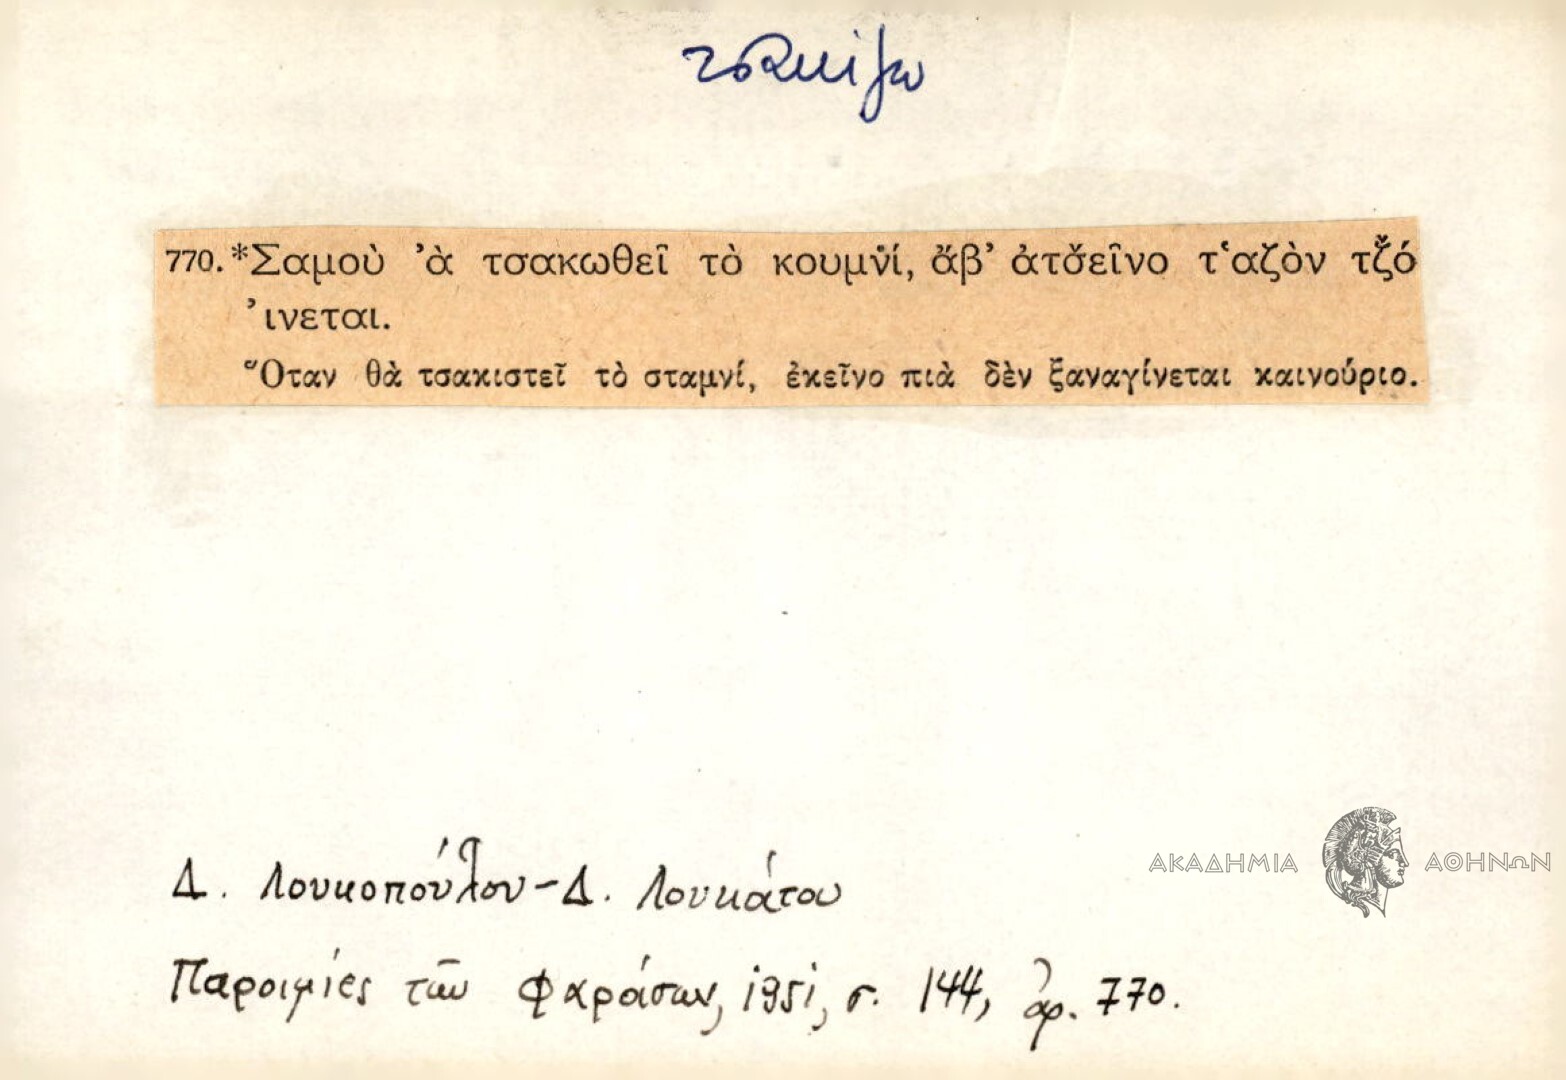 τσακίζω
770. *Σαμοὺ ’ὰ τσακωθεῖ τὸ κουμνί, ἄβ’ ἀτσ̌εῖνο τ‘αζὸν τζ̌ό
’ινεται.
Ὅταν θὰ τσακιστεῖ τὸ σταμνί, ἐκεῖνο πιὰ δὲν ξαναγίνεται καινούριο.
Δ. Λουκοπούλου - Δ. Λουκάτου
Παροιμίες τῶν Φαράσων, 1951, σ. 144, ἀρ. 770.
ΑΚΑΔΗΜΙΑ ΑΘΗΝΩΝ